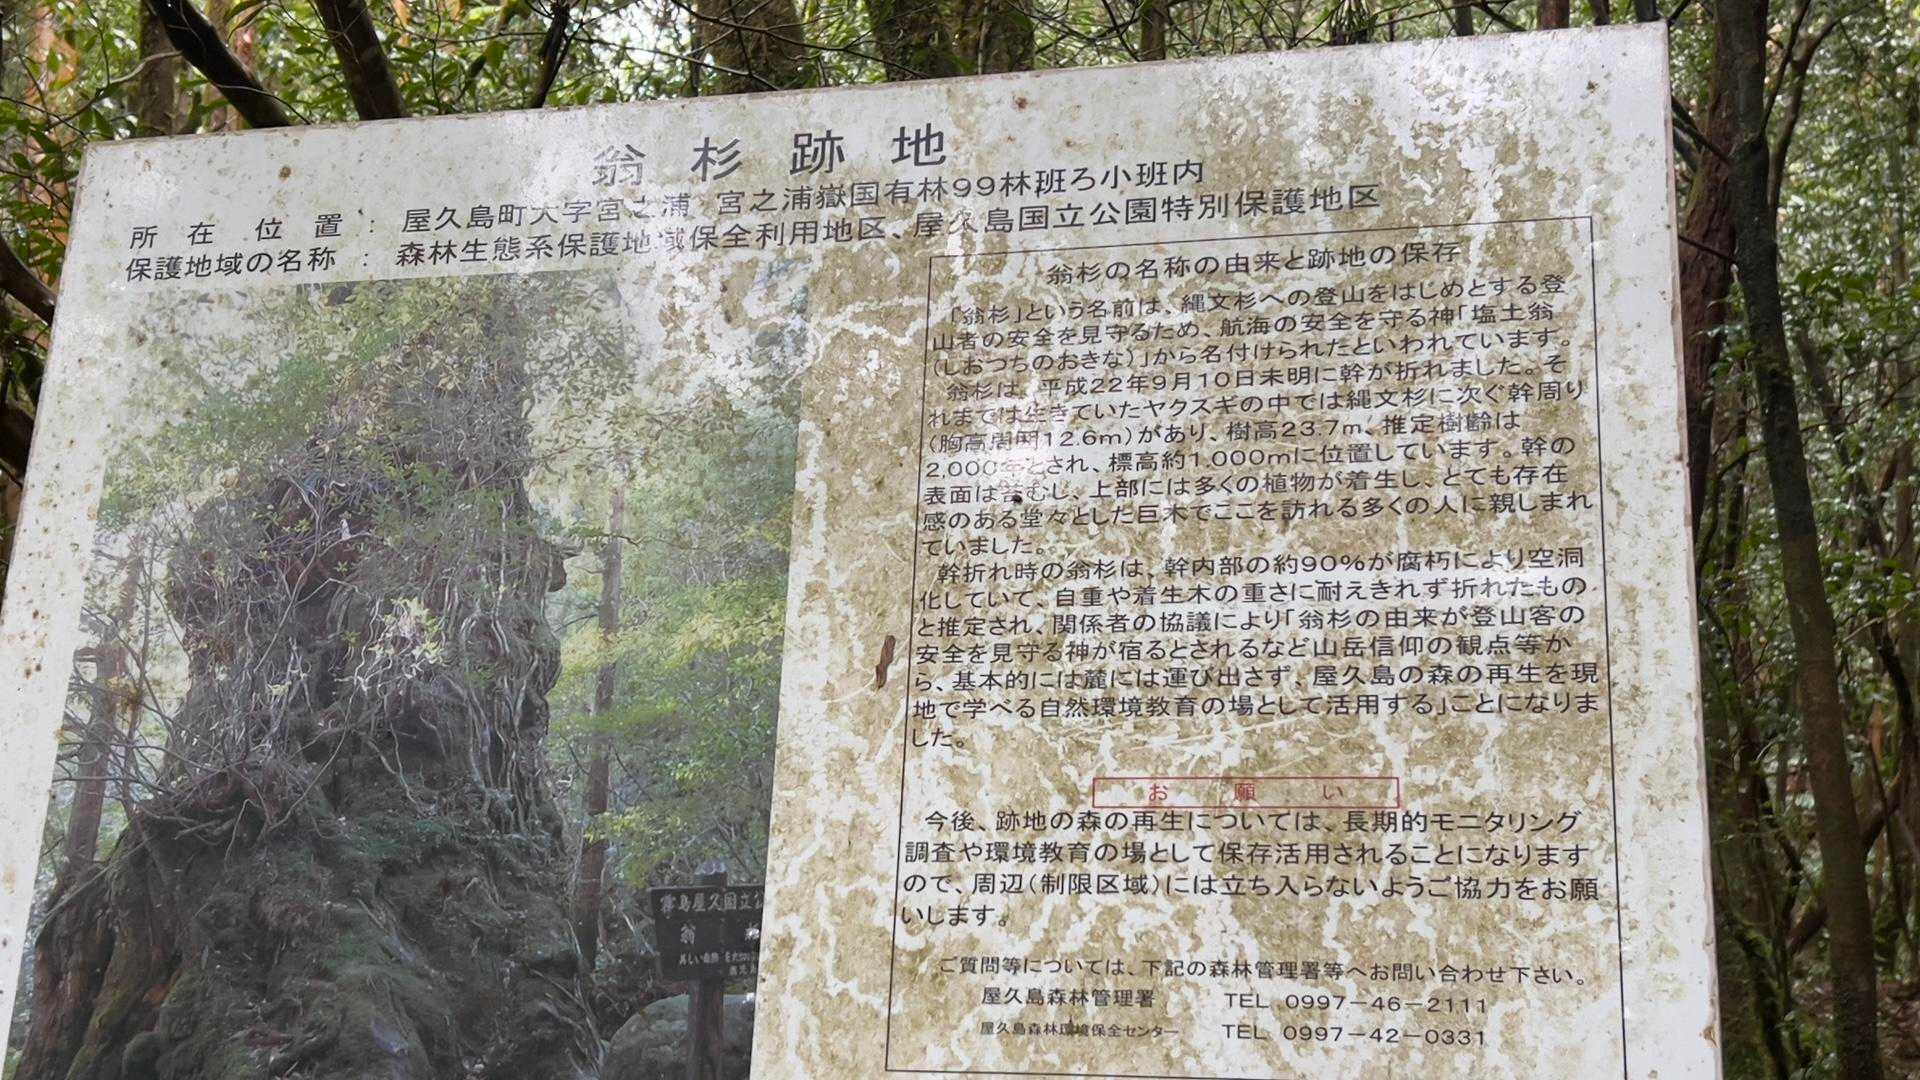 翁杉跡地
所在位置：屋久島町大字宮之浦 宮之浦嶽国有林99林班ろ小班内
保護地域の名称：森林生態系保護地域保全利用地区、屋久島国立公園特別保護地区
翁杉の名称の由来と跡地の保存
「翁杉」という名前は、縄文杉への登山をはじめとする登
山者の安全を見守るため、航海の安全を守る神「塩土翁
（しおつちのおきな）」から名付けられたといわれています。
翁杉は、平成22年9月10日未明に幹が折れました。そ
れまでは生きていたヤクスギの中では縄文杉に次ぐ幹周り
（胸高周囲12.6m）があり、樹高23.7m、推定樹齢は
2,000年とされ、標高約1,000mに位置しています。幹の
表面は苔むし、上部には多くの植物が着生し、とても存在
感のある堂々とした巨木でここを訪れる多くの人に親しまれ
ていました。
幹折れ時の翁杉は、幹内部の約90%が腐朽により空洞
化していて、自重や着生木の重さに耐えきれず折れたもの
と推定され、関係者の協議により「翁杉の由来が登山客の
安全を見守る神が宿るとされるなど山岳信仰の観点等か
ら、基本的には麓には運び出さず、屋久島の森の再生を現
地で学べる自然環境教育の場として活用する」ことになりま
した。
お願い
今後、跡地の森の再生については、長期的モニタリング
調査や環境教育の場として保存活用されることになります
ので、周辺（制限区域）には立ち入らないようご協力をお願
いします。
ご質問等については、下記の森林管理署等へお問い合わせ下さい。
屋久島森林管理署 TEL 0997－46－2111
屋久島森林環境保全センター TEL 0997－42－0331
霧島屋久国立公
翁